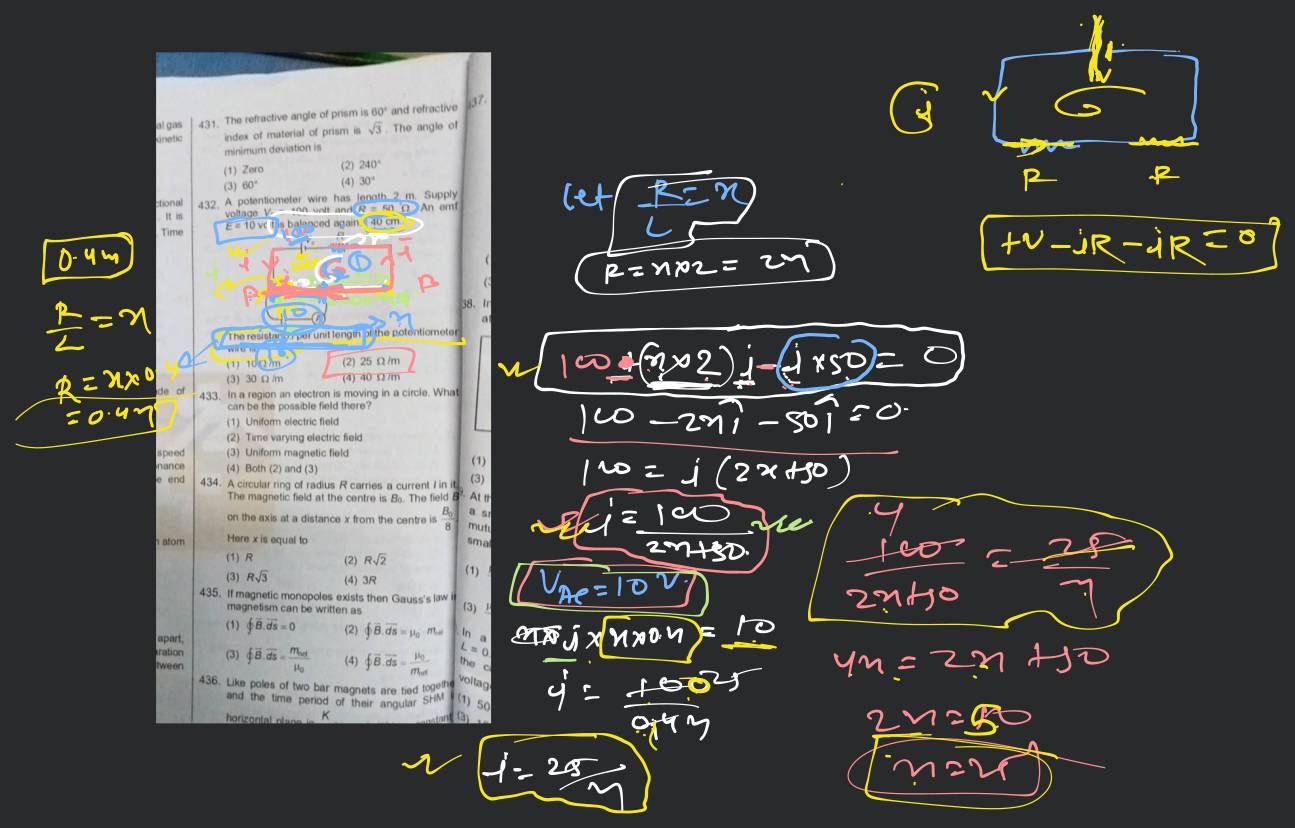 431. The refractive angle of prism is 60° and refractive
index of material of prism is √3 . The angle of
minimum deviation is
(1) Zero (2) 240°
(3) 60° (4) 30°
432. A potentiometer wire has length 2 m. Supply
voltage V = 100 volt and R = 50 Ω An emf
E = 10 volt is balanced again 40 cm
The resistance per unit length of the potentiometer
wire is
(1) 10 Ω/m (2) 25 Ω/m
(3) 30 Ω/m (4) 40 Ω/m
433. In a region an electron is moving in a circle. What
can be the possible field there?
(1) Uniform electric field
(2) Time varying electric field
(3) Uniform magnetic field
(4) Both (2) and (3)
434. A circular ring of radius R carries a current I in it
The magnetic field at the centre is B₀. The field
on the axis at a distance x from the centre is B₀/8
Here x is equal to
(1) R (2) R√2
(3) R√3 (4) 3R
435. If magnetic monopoles exists then Gauss's law in
magnetism can be written as
(1) ∮B̅.d̅s̅ = 0 (2) ∮B̅.d̅s̅ = μ₀
(3) ∮B̅.d̅s̅ = m/μ₀ (4) ∮B̅.d̅s̅ = μ₀/m
436. Like poles of two bar magnets are tied togethe
and the time period of their angular SHM
horizontal plane
K
al gas
kinetic
ctional
. It is
Time
de of
speed
nance
e end
n atom
apart,
aration
tween
37.
38. In
(1)
(3)
At th
a sr
mutu
smal
(1)
(3)
In a
L = 0.
the c
voltag
(1) 50
(3)
0.4m
R/L = x
R = x × 0.4
= 0.4x
let R/L = x
R = x × 2 = 2x
i
R R
+V - iR - iR = 0
100 - (x × 2) i - i × 50 = 0
100 - 2xi - 50i = 0
100 = i (2x + 50)
i = 100/2x+50
V = 10 V
i × x × 0.4 = 10
i = 100/0.4x 25
i = 25/x
4
100/2x+50 = 25/x
4x = 2x + 50
2x = 50
x = 25